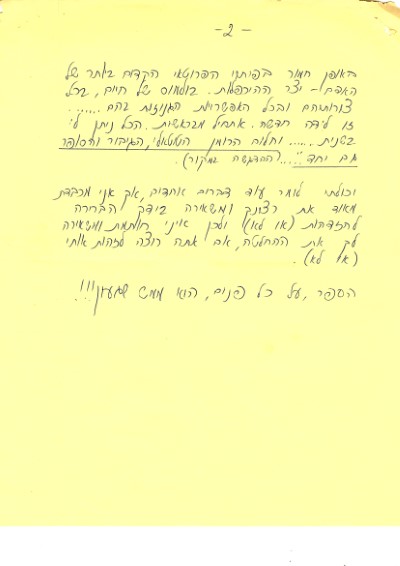 - 2 -
באופן חמור בפיתוי הפרוטאי הקדום ביותר של
האדם – יצר ההיפלות. בולמוס של חיים, בכל
צורותיהם ובכל האפשרויות הגנוזות בהם ......
זו לידה חדשה. אתחיל מבראשית. הכל ניתן לי
בשנית ...... וחלום הרומן הטוטאלי, הגיבור והסופר
גם יחד" .... (ההדגשה במקור).
יכולתי לומר עוד דברים אחדים, אך אני מכבדת
מאוד את רצונך ומשאירה בידך הברירה
להזדהות (או לא) ולכן אינני חותמת ומשאירה
לך את ההחלטה, אם אתה רוצה לזהות אותי
(או לא).
הספר, על כל פנים, הוא ממש שגעון!!!